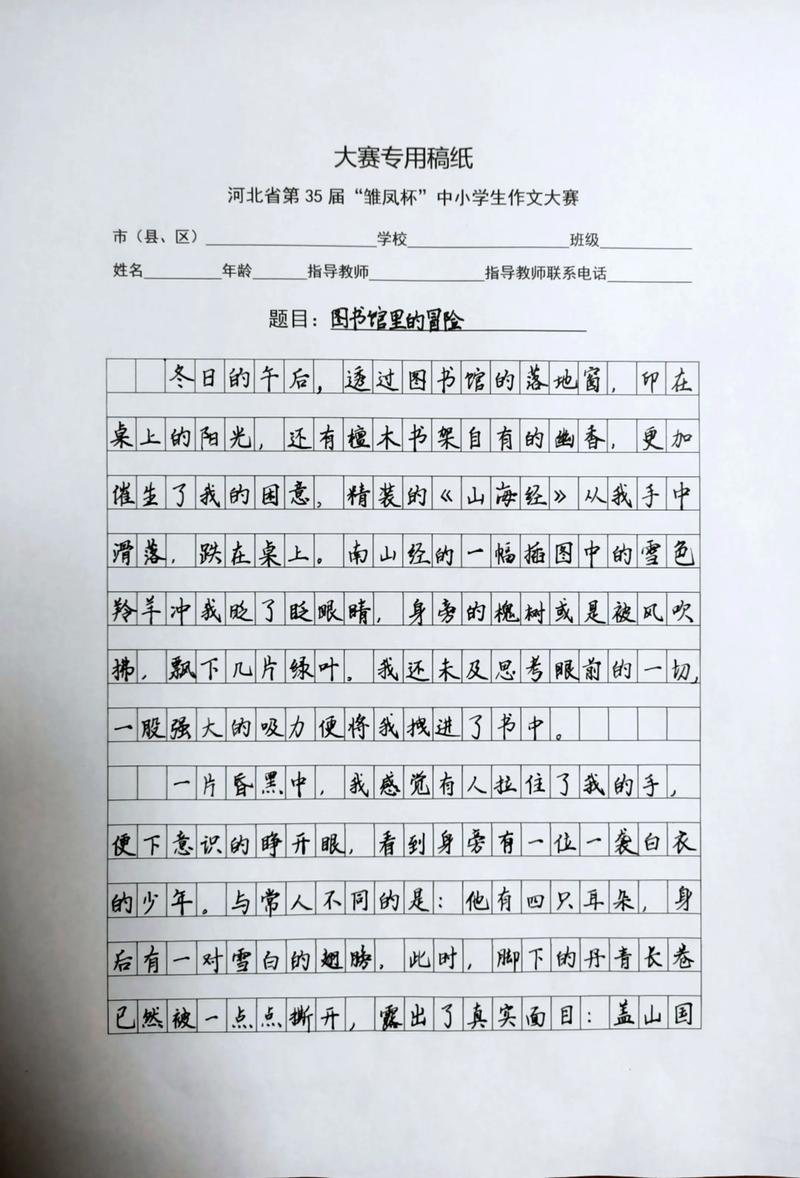 大赛专用稿纸
河北省第 35 届“雏凤杯”中小学生作文大赛
市（县、区）____________学校____________班级____________
姓名____________年龄____________指导教师____________指导教师联系电话____________
题目：图书馆里的冒险
冬日的午后，透过图书馆的落地窗，印在
桌上的阳光，还有檀木书架自有的幽香，更加
催生了我的困意，精装的《山海经》从我手中
滑落，跌在桌上。南山经的一幅插图中的雪色
羚羊冲我眨了眨眼睛，身旁的槐树或是被风吹
拂，飘下几片绿叶。我还未及思考眼前的一切，
一股强大的吸力便将我拽进了书中。
一片昏黑中，我感觉有人拉住了我的手，
便下意识的睁开眼，看到身旁有一位一袭白衣
的少年。与常人不同的是：他有四只耳朵，身
后有一对雪白的翅膀，此时，脚下的丹青长卷
已然被一点点撕开，露出了真实面目：盖山国